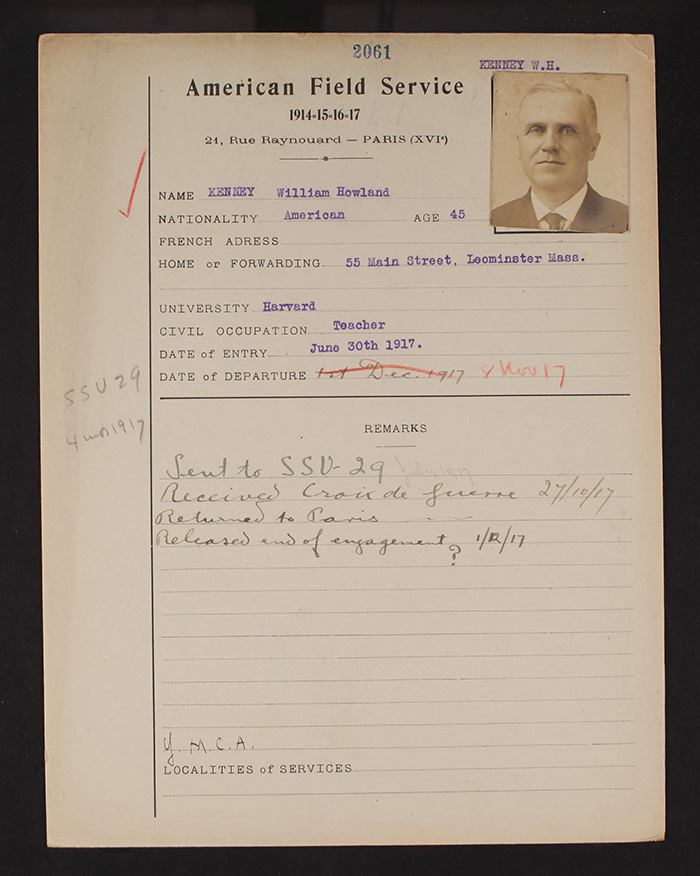 2061
KENNEY W.H.
American Field Service
1914-15-16-17
21, Rue Raynouard — PARIS (XVIe)
NAME KENNEY William Howland
NATIONALITY American AGE 45
FRENCH ADRESS
HOME or FORWARDING 55 Main Street, Leominster Mass.
UNIVERSITY Harvard
CIVIL OCCUPATION Teacher
DATE of ENTRY June 30th 1917.
DATE of DEPARTURE 1st Dec. 1917 8 Nov 17
SSU 29
4 mos 1917
REMARKS
Sent to SSU-29 July 1917
Received Croix de Guerre 27/10/17
Returned to Paris
Released end of engagement ? 1/12/17
Y.M.C.A.
LOCALITIES of SERVICES